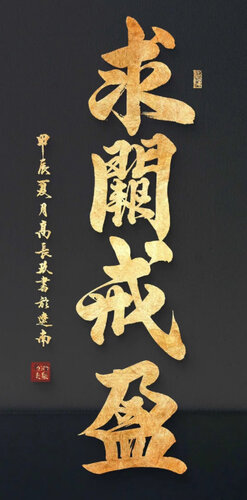 求闕戒盈
甲辰夏月高長書於遼南